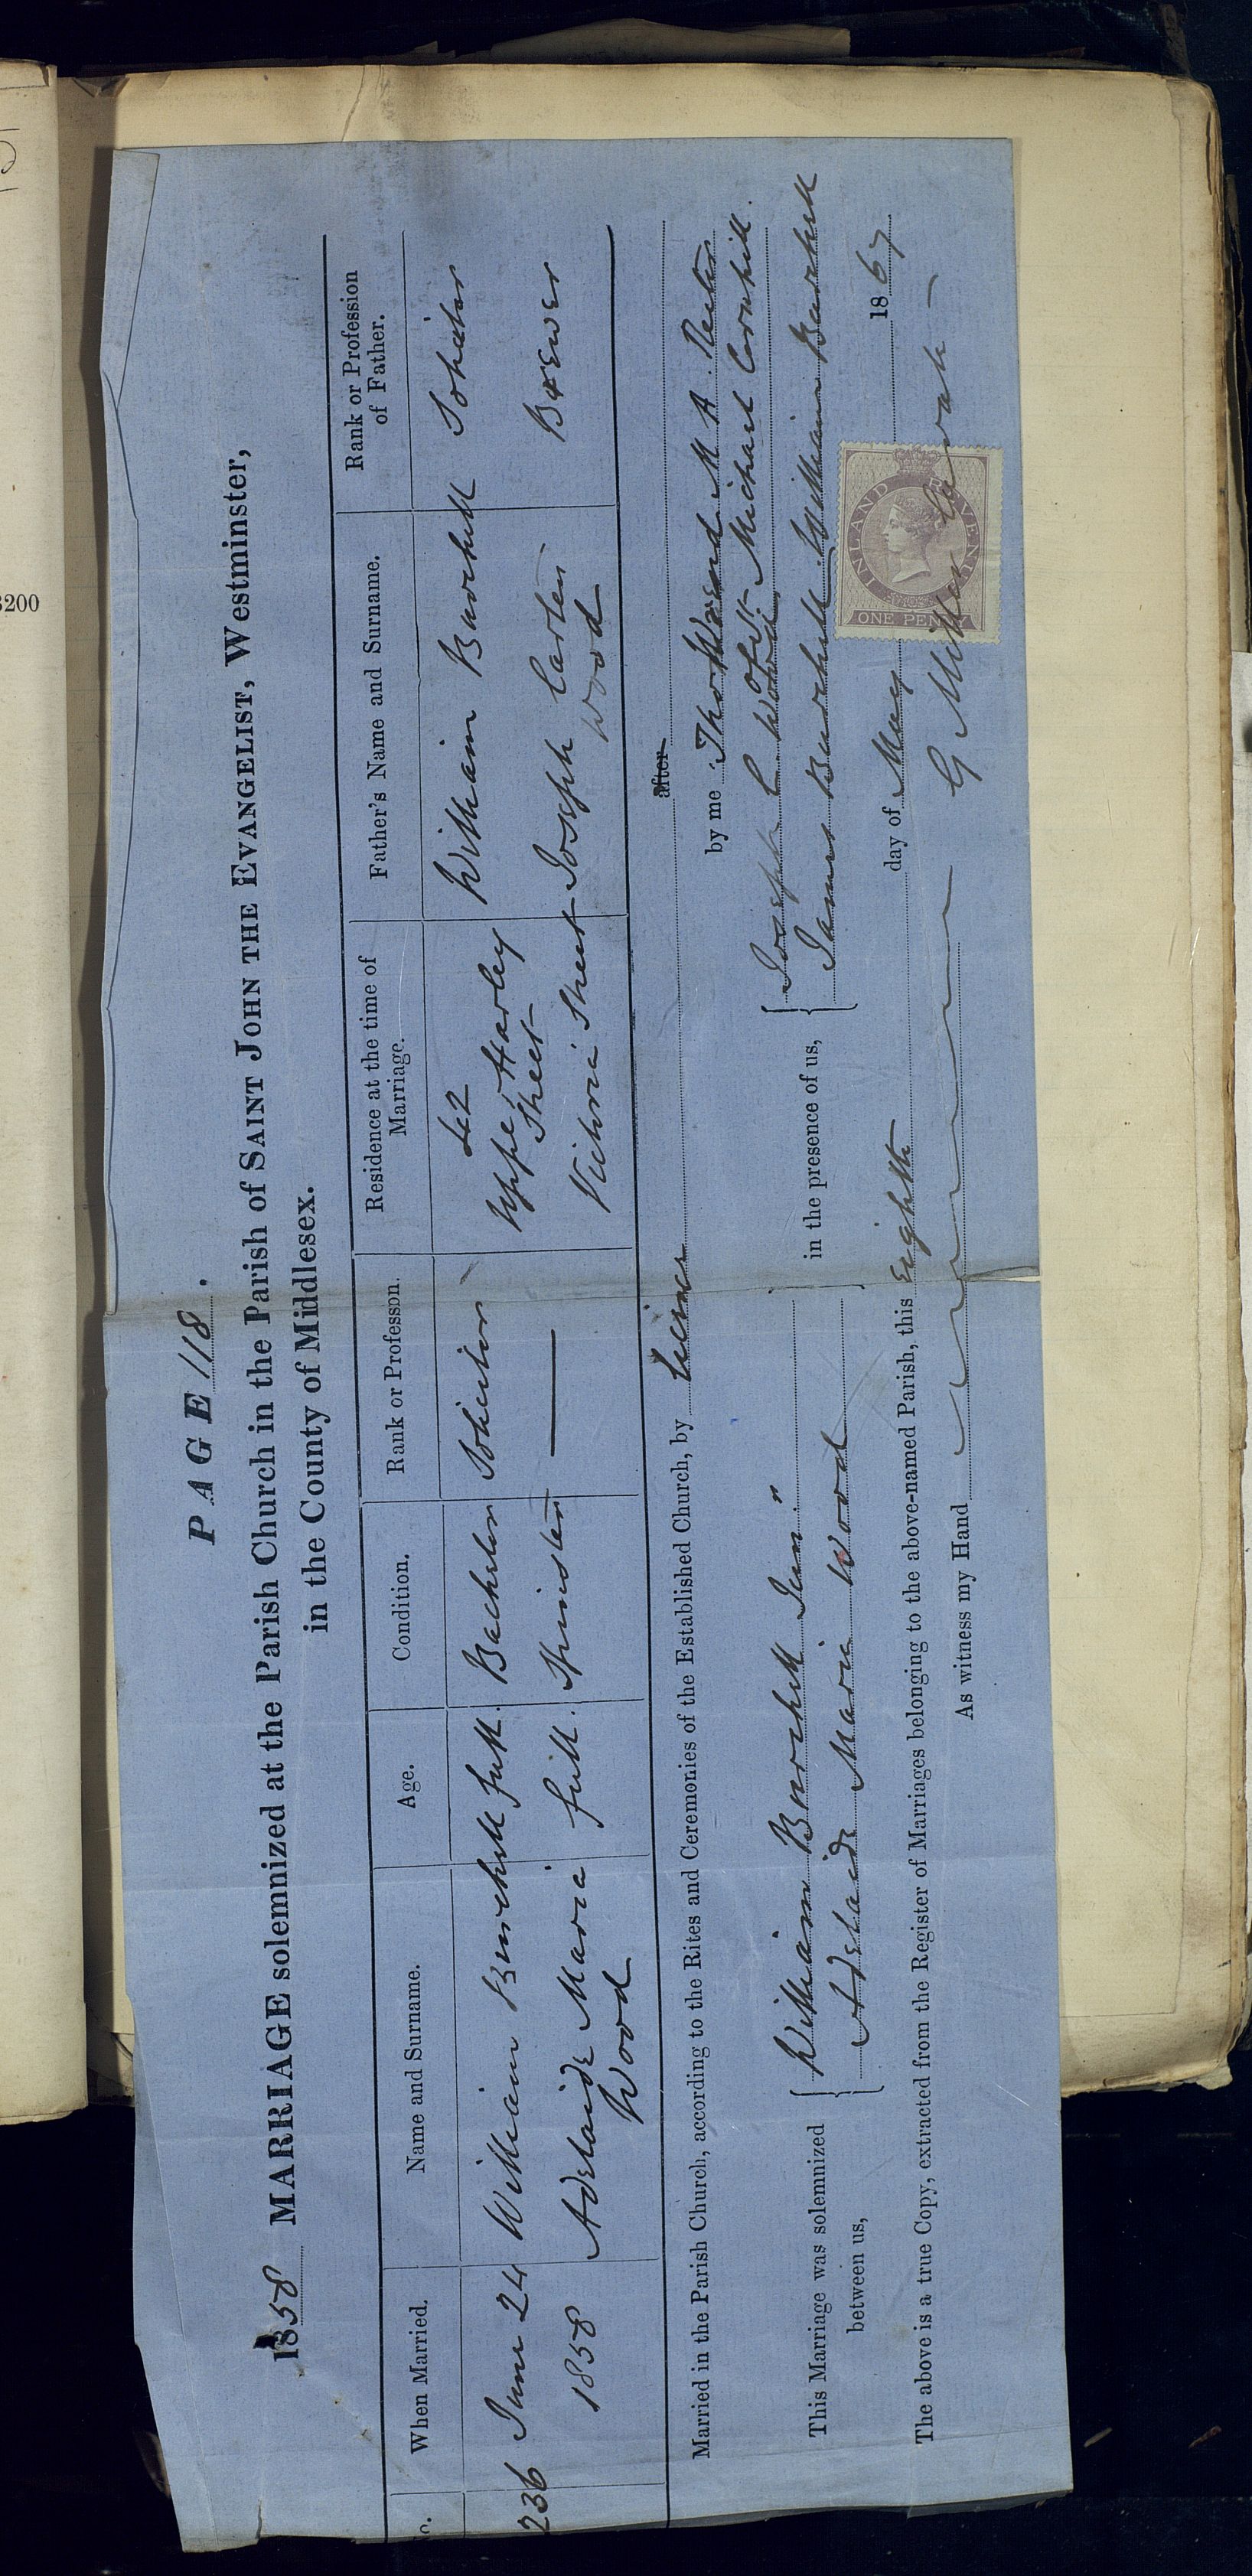 3200
PAGE 118.
1858 MARRIAGE solemnized at the Parish Church in the Parish of SAINT JOHN THE EVANGELIST, Westminster,
in the County of Middlesex.
o. When Married. Name and Surname. Age. Condition. Rank or Professon. Residence at the time of Marriage. Father's Name and Surname. Rank or Profession of Father.
236 June 24 William Burchell full. Bachelor Solicitor 42 Upper Harley Street William Burchell Solicitor
1858 Adelaide Maria Wood full. Spinster Victoria Street Joseph Carter Wood Brewer
Married in the Parish Church, according to the Rites and Ceremonies of the Established Church, by Licence after
by me Thos M A. Rector
of St Michael Cornhill.
This Marriage was solemnized between us,
William Burchell Junr
Adelaide Maria Wood
in the presence of us,
Joseph C. Wood
James Burchell William Burchell
The above is a true Copy, extracted from the Register of Marriages belonging to the above-named Parish, this Eighth day of May 1867
As witness my Hand G
INLAND REVENUE
ONE PENNY